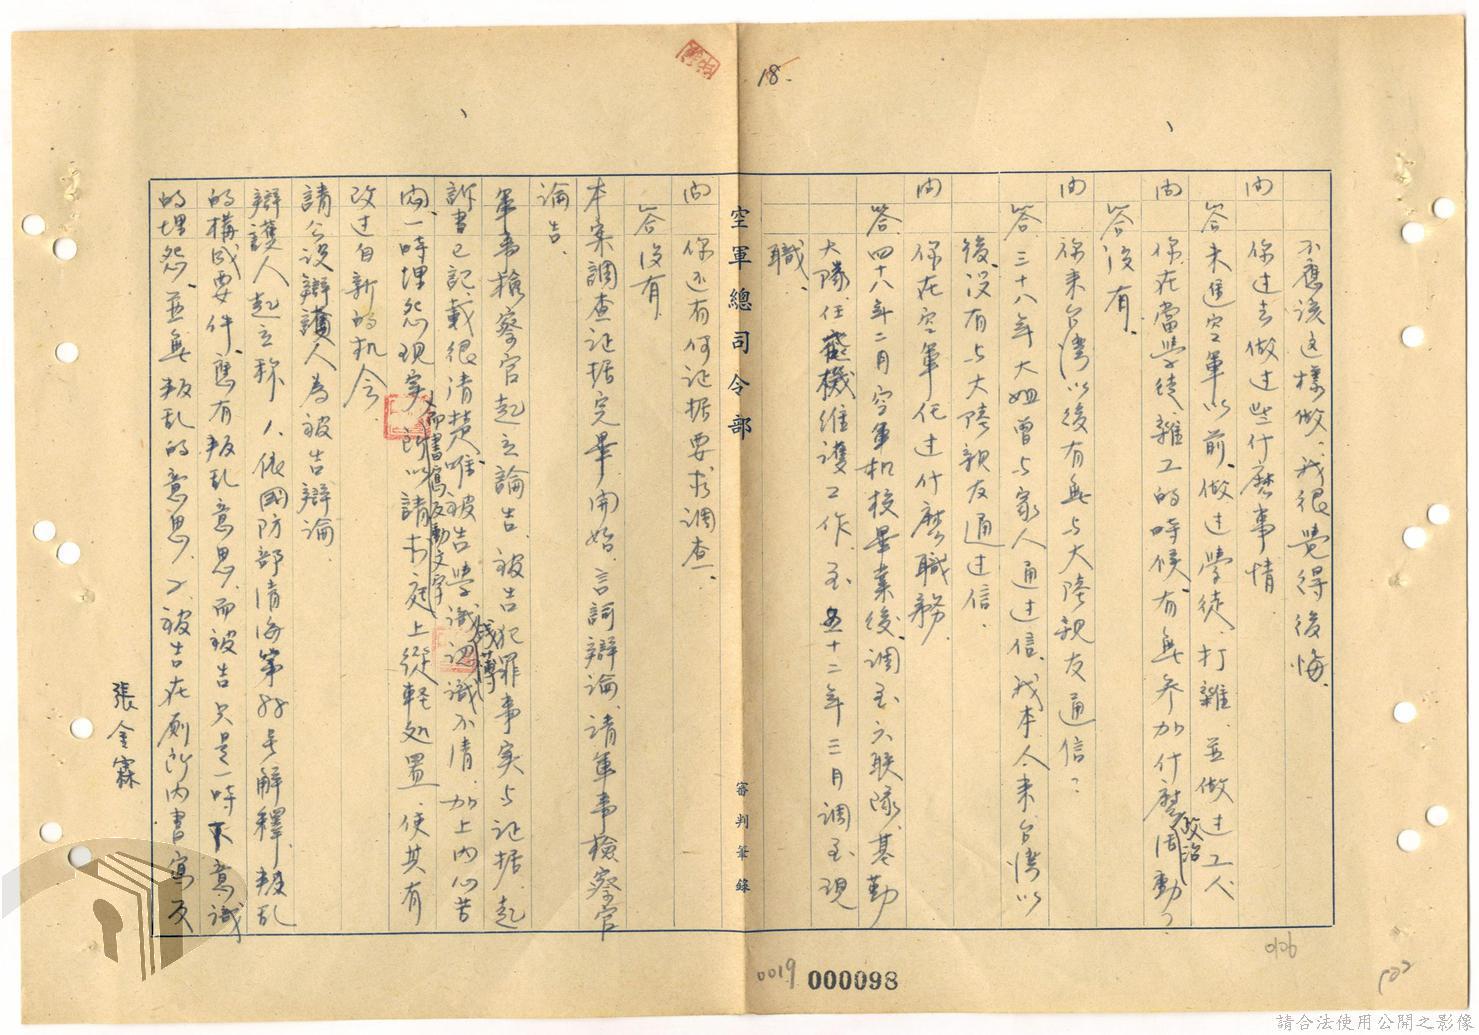 18.
不應該这樣做、我很覺得後悔、
问
你过去做过些什麽事情
答 未進空軍以前、做过學徒、打雜、並做过工人
问
你在當學徒雜工的時候、有無參加什麽政治活動?
答 沒有、
问
你来台灣以後有無与大陸親友通信?
答、三十八年大姐曾与家人通过信、我本人来台灣以
後、沒有与大陸親友通过信、
问
你在空軍任过什麽職務、
答、四十八年二月空軍机校畢業後、調至六联隊、基勤
大隊、任飛機維護工作、至五十二年三月調至現
職、
空軍總司令部
審判筆錄
问
你还有何证据要求調查、
答 沒有
本案調查证据完畢、開始、言詞辯論、請軍事檢察官
論告、
軍事檢察官起立論告、被告犯罪事实与证据、起
訴書已記載很清楚、唯被告學識淺薄認識不清、加上内心苦
闷、一時埋怨現实、而書寫反動文字、所以請求庭上從軽处置、使其有
改过自新的机会
請公設辯護人為被告辯論
辯護人起立称 1、依國防部清海第88号解釋、叛乱
的構成要件、應有叛乱意思、而被告只是一時下意識
的埋怨、並無叛乱的意思、2、被告在厠所内書寫反
張金霖
0106
102
0019
000098
請合法使用公開之影像